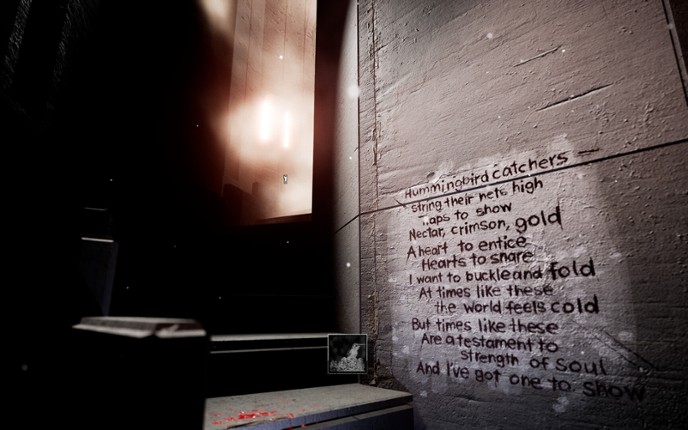 Hummingbird catchers —
string their nets high
to show
Nectar, crimson, gold
A heart to entice
Hearts to snare
I want to buckle and fold
At times like these
the world feels cold
But times like these
Are a testament to
strength of soul
And I've got one to show